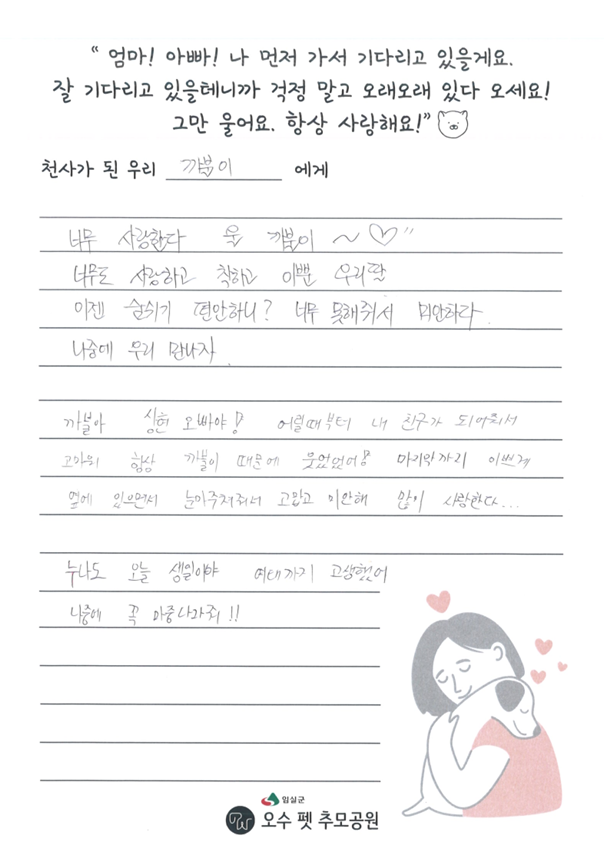 “ 엄마! 아빠! 나 먼저 가서 기다리고 있을게요.
잘 기다리고 있을테니까 걱정 말고 오래오래 있다 오세요!
그만 울어요. 항상 사랑해요!”
천사가 된 우리 까불이 에게
너무 사랑한다 울 까불이 ~ ♡"
너무도 사랑하고 착하고 이쁜 우리딸
이젠 숨쉬기 편안하니? 너무 못해줘서 미안하다.
나중에 우리 만나자
까불아 오빠야! 어릴때부터 내 친구가 되어줘서
고마워 항상 까불이 때문에 웃었었어! 마지막까지 이쁘게
옆에 있으면서 눈마주쳐줘서 고맙고 미안해 많이 사랑한다...
누나도 오늘 생일이야 여태까지 고생했어
나중에 꼭 마중나와줘 !!
임실군
오수 펫 추모공원